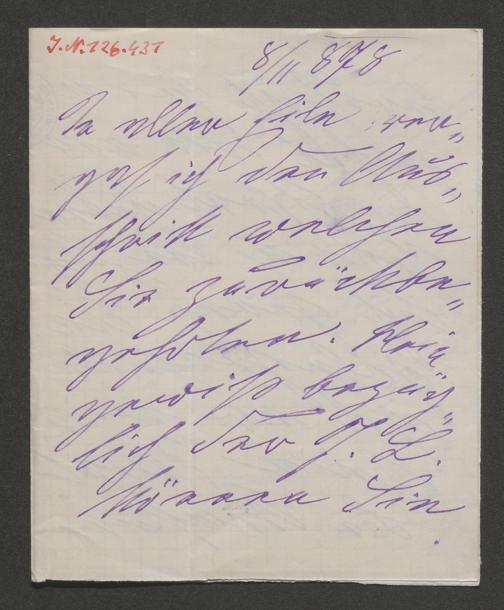 J.N. 126.431
8/11 878
In aller Eile ver„
gaß ich den Aus„
schnitt welchen
Sie zurückbe„
gehrten.
gewiß bezüg„
lich der
können Sie